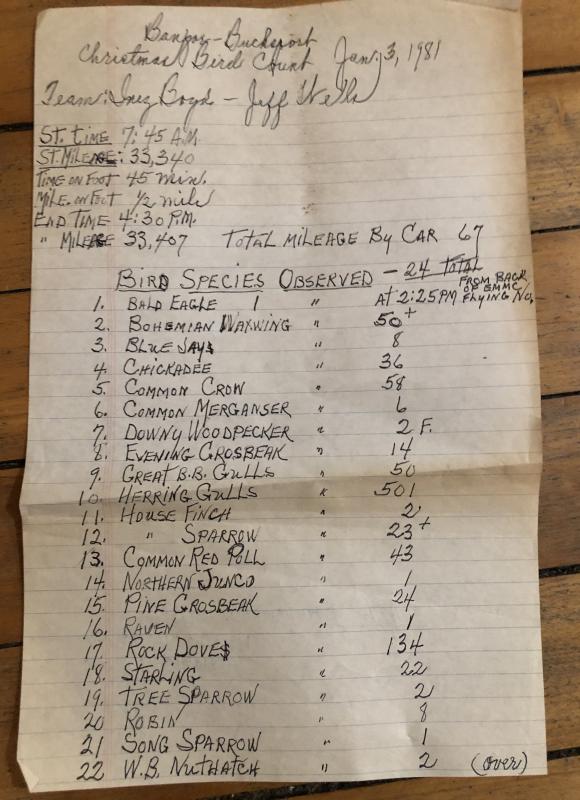 Bangor-Bucksport
Christmas Bird Count Jan. 3, 1981
Team: Inez Boyd - Jeff Wells
St. Time 7:45 A.M.
St. Mileage: 33,340
Time on Foot 45 min.
Mile. on Foot 1/2 mile
End Time 4:30 P.M.
" Mileage 33,407 Total Mileage By Car 67
Bird Species Observed - 24 Total
1. Bald Eagle 1 " At 2:25 PM From Back of EMMC Flying No.
2. Bohemian Waxwing " 50+
3. Blue Jays " 8
4. Chickadee " 36
5. Common Crow " 58
6. Common Merganser " 6
7. Downy Woodpecker " 2 F.
8. Evening Grosbeak " 14
9. Great B.B. Gulls " 50
10. Herring Gulls " 501
11. House Finch " 2
12. " Sparrow " 23+
13. Common Red Poll " 43
14. Northern Junco " 1
15. Pine Grosbeak " 24
16. Raven " 1
17. Rock Doves " 134
18. Starling " 22
19. Tree Sparrow " 2
20 Robin " 8
21 Song Sparrow " 1
22 W.B. Nuthatch " 2 (over)